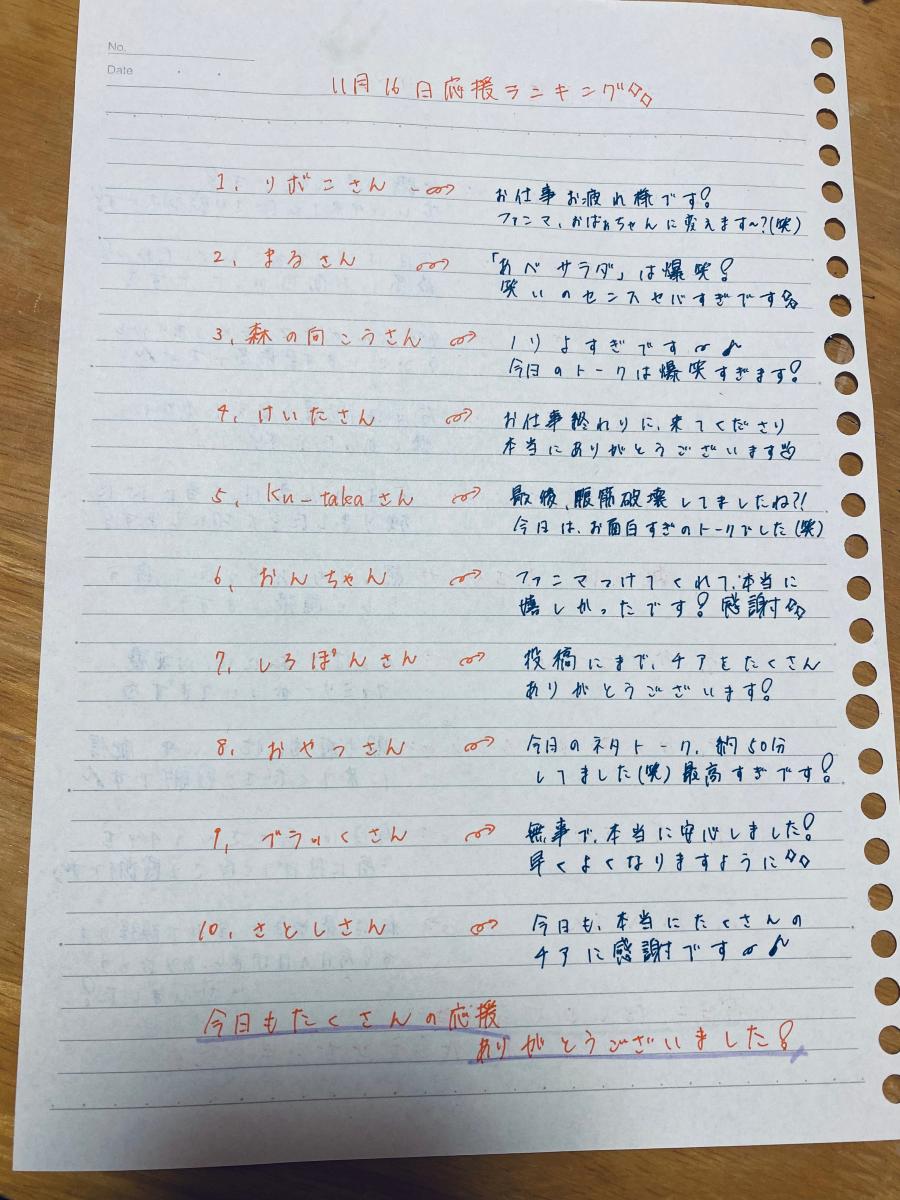 No.
Date
11月16日応援ランキング
1, リボこさん
お仕事お疲れ様です!
ファンマ、おばぁちゃんに変えます〜?(笑)
2, まるさん
「あべサラダ」は爆笑!
笑いのセンスヤバすぎです
3, 森の向こうさん
ノリよすぎです〜♪
今日のトークは爆笑すぎます!
4, けいたさん
お仕事終わりに、来てくださり
本当にありがとうございます
5, Ku-takaさん
最後、腹筋破壊してましたね?!
今日は、お面白すぎのトークでした(笑)
6, おんちゃん
ファンマつけてくれて、本当に
嬉しかったです!感謝
7, しろぽんさん
投稿にまで、チアをたくさん
ありがとうございます!
8, おやっさん
今日のネタトーク、約50分
してました(笑)最高すぎです!
9, ブラッくさん
無事で、本当に安心しました!
早くよくなりますように
10, さとしさん
今日も、本当にたくさんの
チアに感謝です〜♪
今日もたくさんの応援
ありがとうございました!